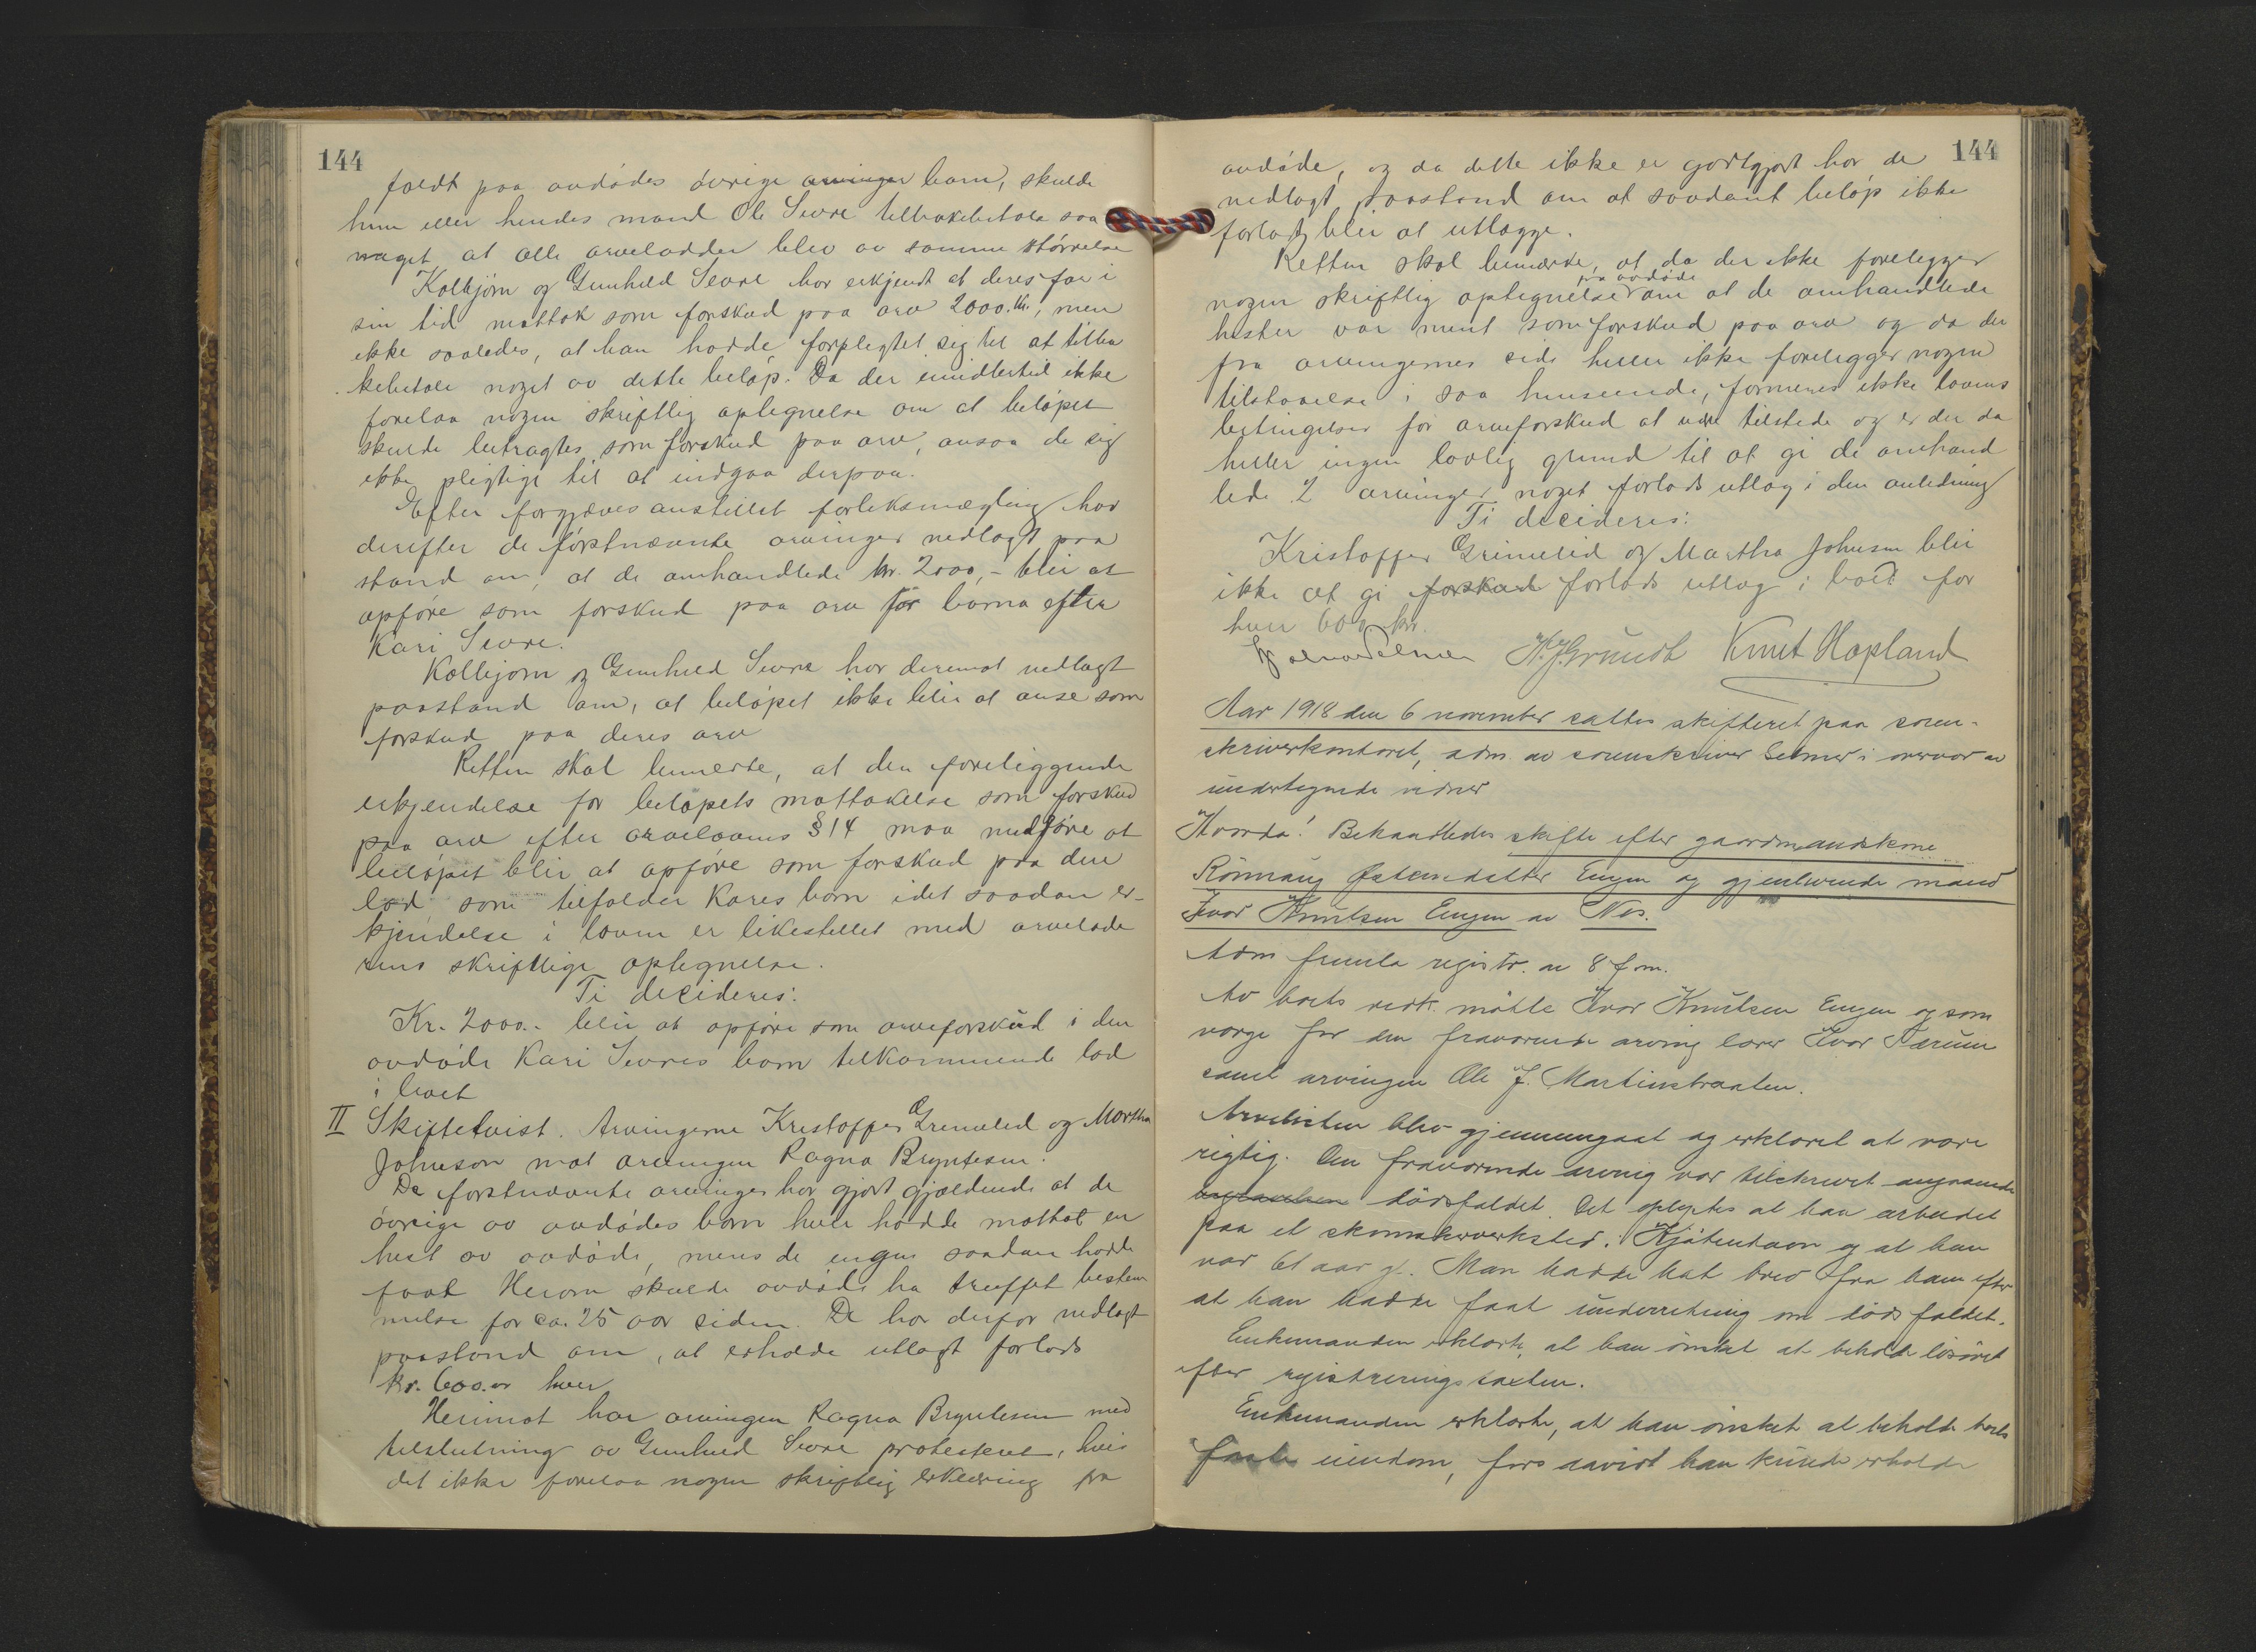 144
faldt paa avdødes øvrige arvinger barn, skulde
hun eller hendes mand Ole Sevre tilbakebetale saa
meget at alle arvelodder blev av samme størrelse
Kolbjørn og Gunhild Sevre har erkjendt at deres far i
sin tid mottok som forskud paa arv 2000. kr., men
ikke saaledes, at han hadde forpligtet sig til at tilba
kebetale noget av dette beløp. Da der imidlertid ikke
forelaa nogen skriftlig optegnelse om at beløpet
skulde betragtes som forskud paa arv, ansaa de sig
ikke pligtige til at indgaa derpaa.
Efter forgjæves anstillet forliksmægling har
derefter de førstnævnte arvinger nedlagt paa
stand om, at de omhandlede kr. 2000,- blir at
opføre som forskud paa arv for barna efter
Kari Sevre.
Kolbjørn og Gunhild Sevre har derimot nedlagt
paastand om, at beløpet ikke blir at anse som
forskud paa deres arv
Retten skal bemerke, at den foreliggende
erkjendelse for beløpets mottakelse som forskud
paa arv efter arvelovens § 14 maa medføre at
beløpet blir at opføre som forskud paa den
lod som tilfalder Karis barn idet saadan er-
kjendelse i loven er likestillet med arvelade
rens skriftlige optegnelse.
Ti decideres:
Kr. 2000.- blir at opføre som arveforskud i den
avdøde Kari Sevres barn tilkommende lod
i boet
II Skiftetvist. Arvingerne Kristoffer Grimelid og Martha
Johnson mot arvingen Ragna Bryntesen.
De førstnævnte arvinger har gjort gjældende at de
øvrige av avdødes barn hver hadde mottat en
hest av avdøde, mens de ingen saadan hadde
faat Herom skulde avdøde ha truffet bestem
melse for ca. 25 aar siden. De har derfor nedlagt
paastand om, at erholde utlagt forlods
kr. 600.00 hver
Herimot har arvingen Ragna Bryntesen med
tilslutning av Gunhild Sevre protestert, hvis
det ikke forelaa nogen skriftlig erklæring fra
144
avdøde, og da dette ikke er godtgjort har de
nedlagt paastand om at saadant beløp ikke
forlods blir at utlægge.
Retten skal bemerke, at da der ikke foreligger
fra avdøde
nogen skriftlig optegnelse om at de omhandlede
hester var ment som forskud paa arv og da der
fra arvingernes side heller ikke foreligger nogen
tilstaaelse i saa henseende, formenes ikke lovens
betingelser for arveforskud at være tilstede og er der da
heller ingen lovlig grund til at gi de omhand
lede 2 arvinger noget forlods utlæg i den anledning
Ti decideres:
Kristoffer Grimelid og Martha Johnson blir
ikke at gi forskud forlods utlæg i boet for
hver 600 kr.
H. J. Grundt Knut Hopland
Aar 1918 den 6 november sattes skifteret paa soren-
skriverkontoret, adm. av sorenskriver Selmer i overvær av
undertegnede vidner
Hvorda! Behandledes skifte efter gaardmandskone
Rønnaug Østensdatter Engen og gjenlevende mand
Ivar Knutsen Engen av Nes.
Adm fremla registr. av 8 f m.
Av boets vedk. møtte Ivar Knutsen Engen og som
værge for den fraværende arving lærer Ivar Færum
samt arvingen Ole J. Martinsbraaten.
Arvelisten blev gjennemgaat og erklæret at være
rigtig. Den fraværende arving var tilskrevet angaaende
dødsfaldet. Det oplystes at han arbeidet
paa et skomakerverksted i Kjøbenhavn og at han
var 61 aar gl. Man hadde hat brev fra ham efter
at han hadde faat underretning om dødsfaldet.
Enkemanden erklærte, at han ønsket at beholde løsøret
efter registreringstaxten.
Enkemanden erklærte, at han ønsket at beholde boets
faste eiendom, forsaavidt han kunde erholde